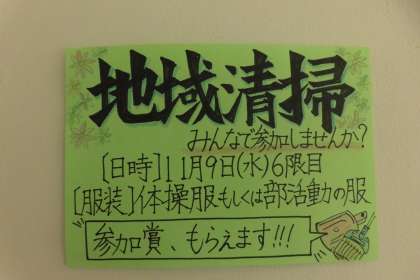 地域清掃
みんなで参加しませんか?
[日時]11月9日(水)6限目
[服装]体操服もしくは部活動の服
参加賞、もらえます!!!